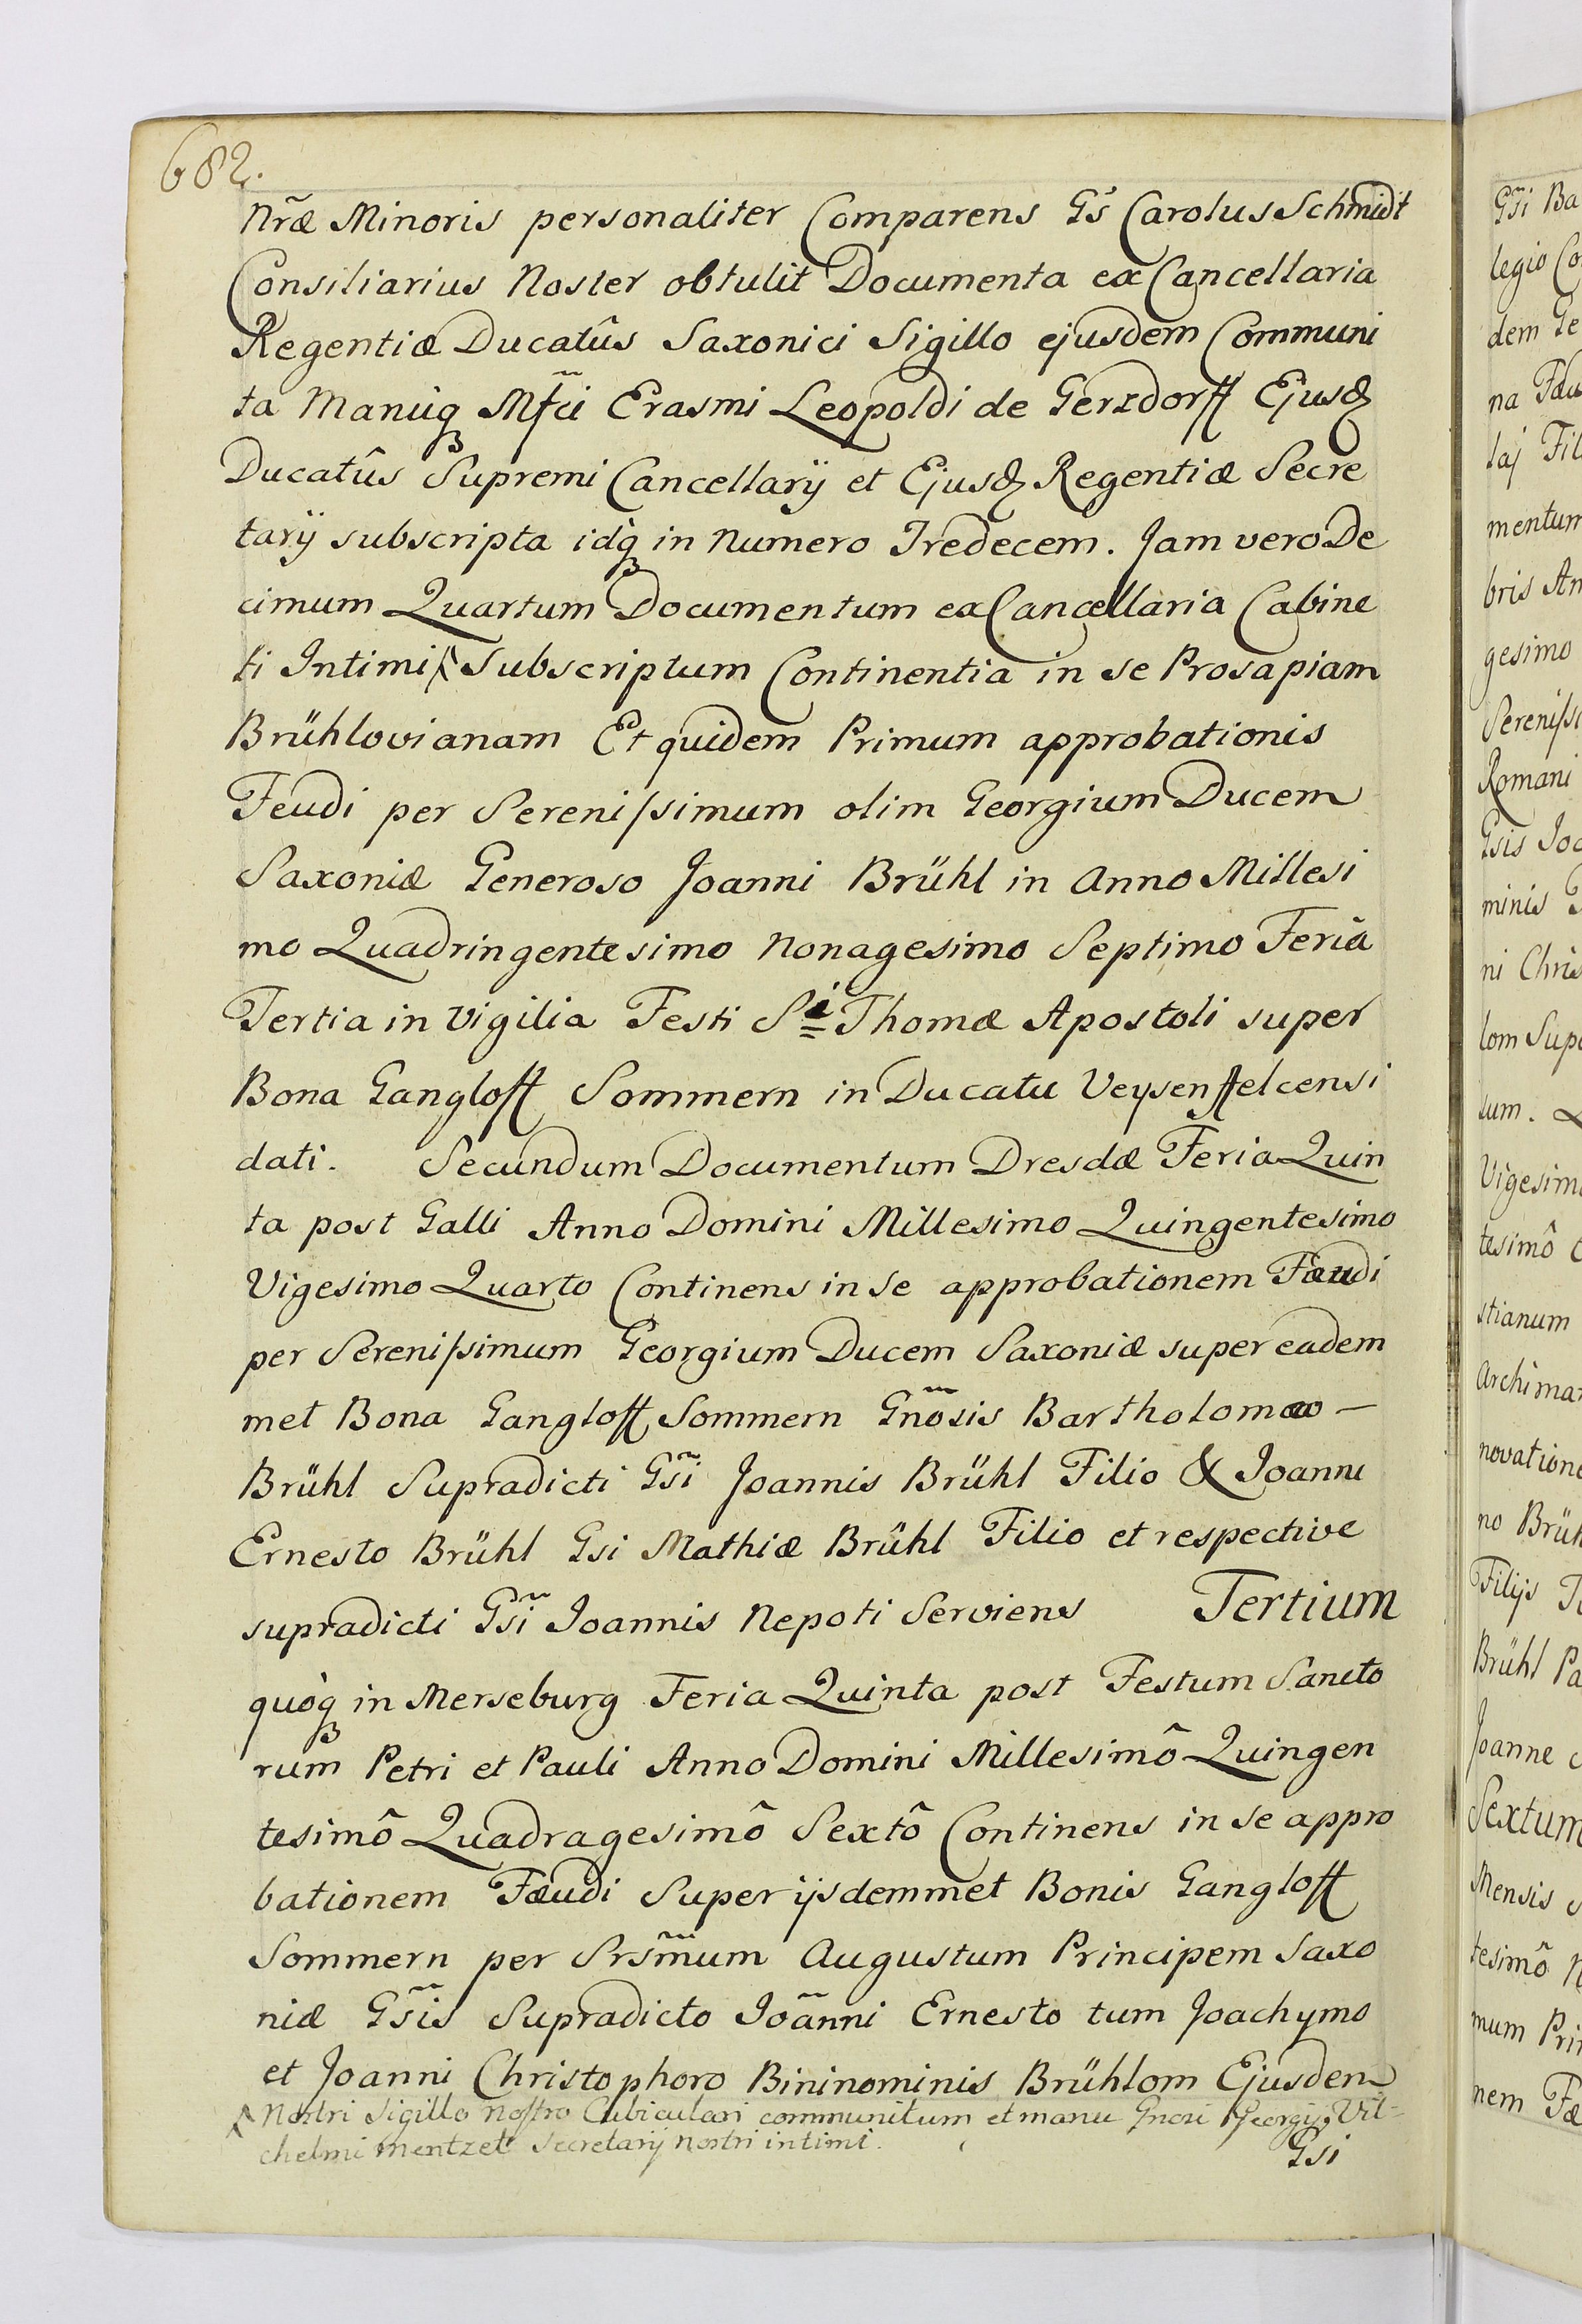 682.
Nr̃æ Minoris personaliter Comparens Gs̃ Carolus Schmidt
Consiliarius Noster obtulit Documenta ex Cancellaria
Regentiæ Ducatûs Saxonici Sigillo ejusdem Communi
ta Manuq̨ Mf̃ci Erasmi Leopoldi de Gerxdorff Ejusdꝫ
Ducatûs Supremi Cancellarij et Ejusdꝫ Regentiæ Secre
tarij subscripta idq̨ in Numero Tredecem. Jam vero De
cimum Quartum Documentum ex Cancellaria Cabine
ti Intimi ^ Subscriptum Continentia in se Prosapiam
Brühlovianam Et quidem Primum approbationis
Feudi per Serenissimum olim Georgium Ducem
Saxoniæ Generoso Joanni Brühl in Anno Millesi
mo Quadringentesimo Nonagesimo Septimo Feriâ
Tertia in Vigilia Festi Sti Thomæ Apostoli super
Bona Gangloff Sommern in Ducatu Veysenffelcensi
dati. Secundum Documentum Dresdæ Feria Quin
ta post Galli Anno Domini Millesimo Quingentesimo
Vigesimo Quarto Continens in se approbationem Fæudi
per Serenissimum Georgium Ducem Saxoniæ super eadem
met Bona Gangloff Sommern Gñosis Bartholomæo —
Brühl Supradicti Gs̃i Joannis Brühl Filio & Joanni
Ernesto Brühl Gsi Mathiæ Brühl Filio et respective
supradicti Gs̃i Joannis Nepoti Serviens Tertium
quoq̨ in Merseburg Feria Quinta post Festum Sancto
rum Petri et Pauli Anno Domini Millesimô Quingen
tesimô Quadragesimô Sextô Continens in se appro
bationem Fæudi Super ijsdemmet Bonis Gangloff
Sommern per Srsm̃um Augustum Principem Saxo
niæ Gs̃is Supradicto Joãnni Ernesto tum Joachymo
et Joanni Christophoro Bininominis Brühlom Ejusdem
^ Nostri Sigillo nostro Cubiculari communitum et manu Gnosi Georgij Vil=
chelmi Mentzel Secretarij Nostri intimi.
Gsi
Gs̃i Ba
legio Co
dem Ge
na Fæu
laj Fil
mentum
bris An
gesimo
Sereniss
Romani
Gsis Joa
minis
ni Chris
lom Supe
tum.
Vigesim
tesimô
stianum
Archimar
novatione
no Brüh
Filijs
Brühl Pa
Joanne
Sextum
Mensis
tesimô N
mum Pri
nem Fæ